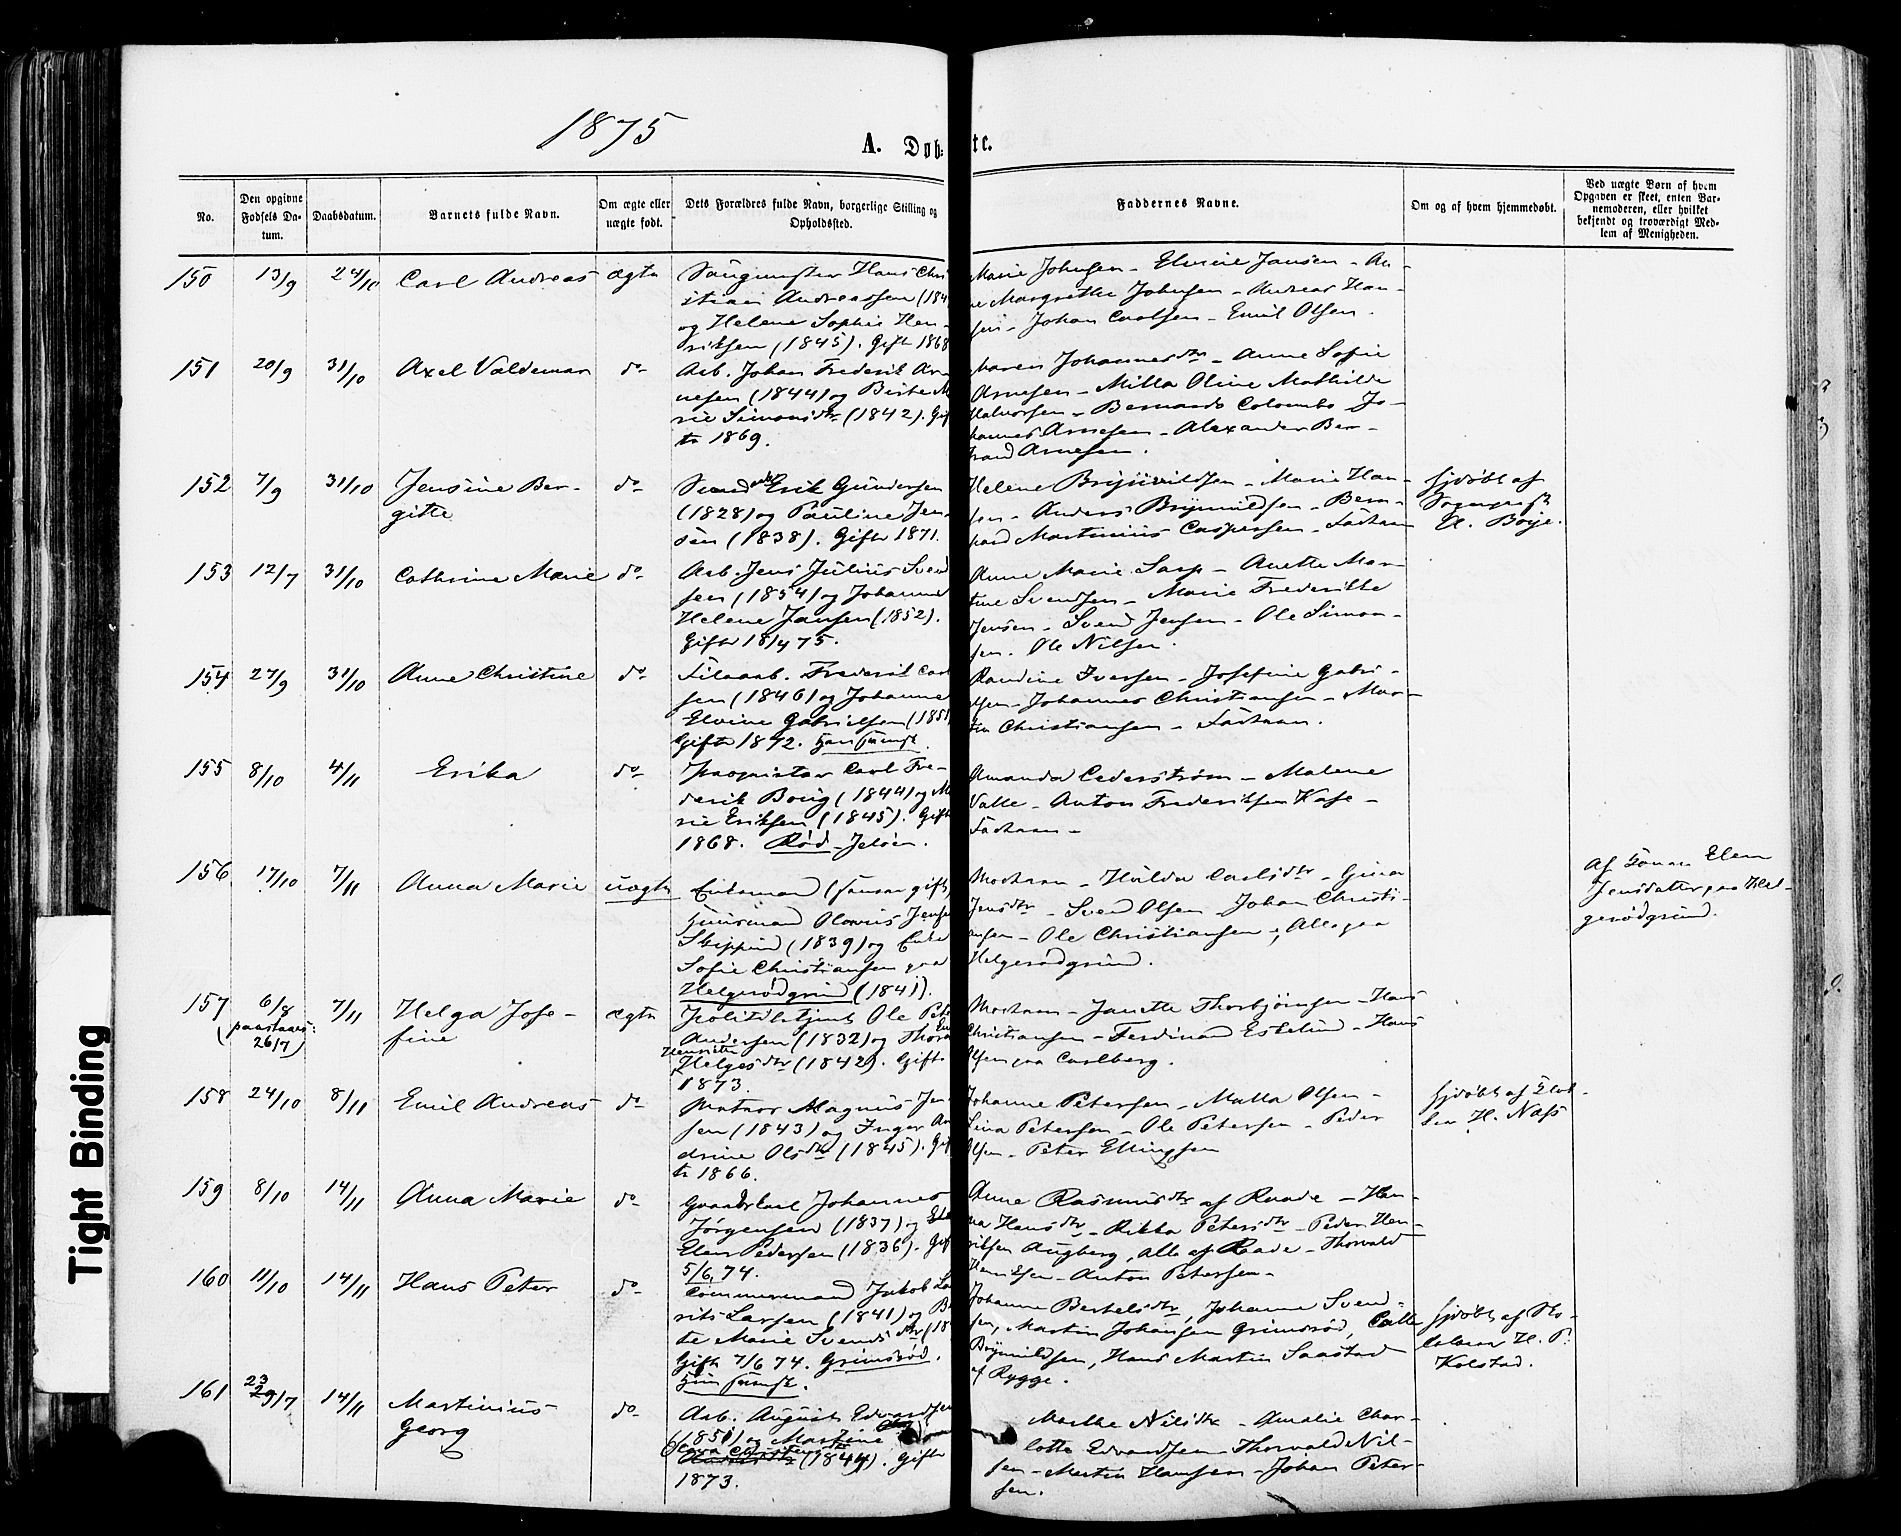 1875
A. Døb:
te.
No.
Den opgivne Fødsels Da-
tum.
Daabsdatum.
Barnets fulde Navn.
Om ægte eller
uægte født.
Dets Forældres fulde Navn, borgerlige Stilling og
Opholdssted.
Faddernes Navne.
Om og af hvem hjemmedøbt.
Ved uægte Børn af hvem
Opgaven er skeet, enten Bar-
nemoderen, eller hvilket
bekjendt og troværdigt Med-
lem af Menigheden.
150 13/9 24/10 Carl Andreas ægte
Hans Chri
stian Andreassen (184
og Helene Sophie Hen-
riksen (1845). Gift 1868
Marie Johnsen - Elvine Jansen - An-
ne Margrethe Johnsen - Andreas Han-
sen - Johan Carlsen - Emil Olsen.
151 20/9 31/10 Axel Valdemar do
Arb. Johan Frederik Ar-
nesen (1844) og Birte M
rie Simonsdtr (1842). Gif
te 1869.
Maren Johannesdtr - Anne Sofie
Arnesen - Milla Oline Mathilde
Halvorsen - Bernardo Colombo - Jo-
hannes Arnesen - Alexander Ber-
trand Arnesen.
152 7/9 31/10 Jensine Ber-
gitte do
Erik Gundersen
(1828) og Pauline Jen-
sen (1838). Gifte 1871.
Helene Brynildsen - Marie Han-
sen - Anders Brynnildsen - Bern-
hard Martinius Caspersen - Faderen
hjdøbt af
Sognepr.
Boye.
153 12/7 31/10 Cathrine Marie do
Arb. Jens Julius Svend
sen (1854) og Johanne
Helene Jansen (1852).
Gifte 18/4 75.
Anne Marie Sarp - Anette Mar-
tine Svendsen - Marie Frederikke
Jensen - Svend Jensen - Ole Simon-
sen. Ole Nilsen.
154 27/9 31/10 Anne Christine do
Frederik Carl
sen (1846) og Johanne
Elvine Gabrielsen (1851
Gifte 1872.
Randine Iversen - Josefine Gabri-
elsen - Johannes Christiansen - Mar-
tin Christiansen - Faderen.
155 8/10 4/11 Erika do
Proprietær Carl Fre-
derik Boug (1844) og M
rie Eriksen (1845). Gift
1868. Rød - Jeløen.
Amanda Cederstrøm - Malene
Valle - Anton Frederiksen
Faderen -
156 17/10 7/11 Anna Marie uægte
Enkemand (gift)
Huusmand Olavus Jensen
Skippind (1839) og Enke
Sofie Christiansen paa
Helgerødgrund (1841).
Moderen - Hulda Carlsdtr - Gina
Jensdtr - Svend Olsen - Johan Christi-
ansen - Ole Christiansen, Alle paa
Helgerødgrund.
Af Konen Elen
Jensdatter paa Hel-
gerødgrund.
157 6/8
(paastaaes:
26/7) 7/11 Helga Jose-
fine ægte
Politibetjent Ole Peter
Andersen (1832) og Thora
Henriette
Helgesdtr (1842). Gifte
1873.
Moderen - Janette Thorbjørnsen - Hans
Christiansen - Ferdinand Eskelund - Hans
Olsen paa Carlberg.
158 24/10 8/11 Emil Andreas do
Matros Magnus Jen-
sen (1843) og Inger An
drine Olsdtr (1845). Gif
te 1866.
Johanne Petersen - Malla Olsen -
Lina Petersen - Ole Petersen - Peder
Olsen - Peter Ellingsen
hjdøbt af
H. Næss
159 8/10 14/11 Anna Marie do
Gaardbrbr Johannes
Jørgensen (1837) og
Elen Pedersen (1836). Gif
5/6 74.
Anne Rasmusdtr af Raade - Han-
na Hansdtr - Rikka Petersdtr - Peder Hen-
riksen Augberg, alle af Raade - Thorvald
Henriksen - Anton Petersen -
160 11/10 14/11 Hans Peter do
Tømmermand Jakob La
rits Larsen (1841) og Be
te Marie Svendsdtr (18
Gifte 7/6 74. Grimsrød.
Johanne Bertelsdtr, Johanne Svend-
sen, Martin Johansen Grimsrød, Calle
Brynnildsen, Hans Martin Saastad
af Rygge.
hjdøbt af
H. P.
Kolstad.
161 23
29/7 14/11 Martinius
Georg do
Arb. August Edvardsen
(1851) og Martine
(1844). Gifte
1873.
Marthe Nilsdtr - Amalie Char-
lotte Edvardsen - Thorvald Nil-
sen - Martin Hansen - Johan Peter-
sen.
Tight Binding